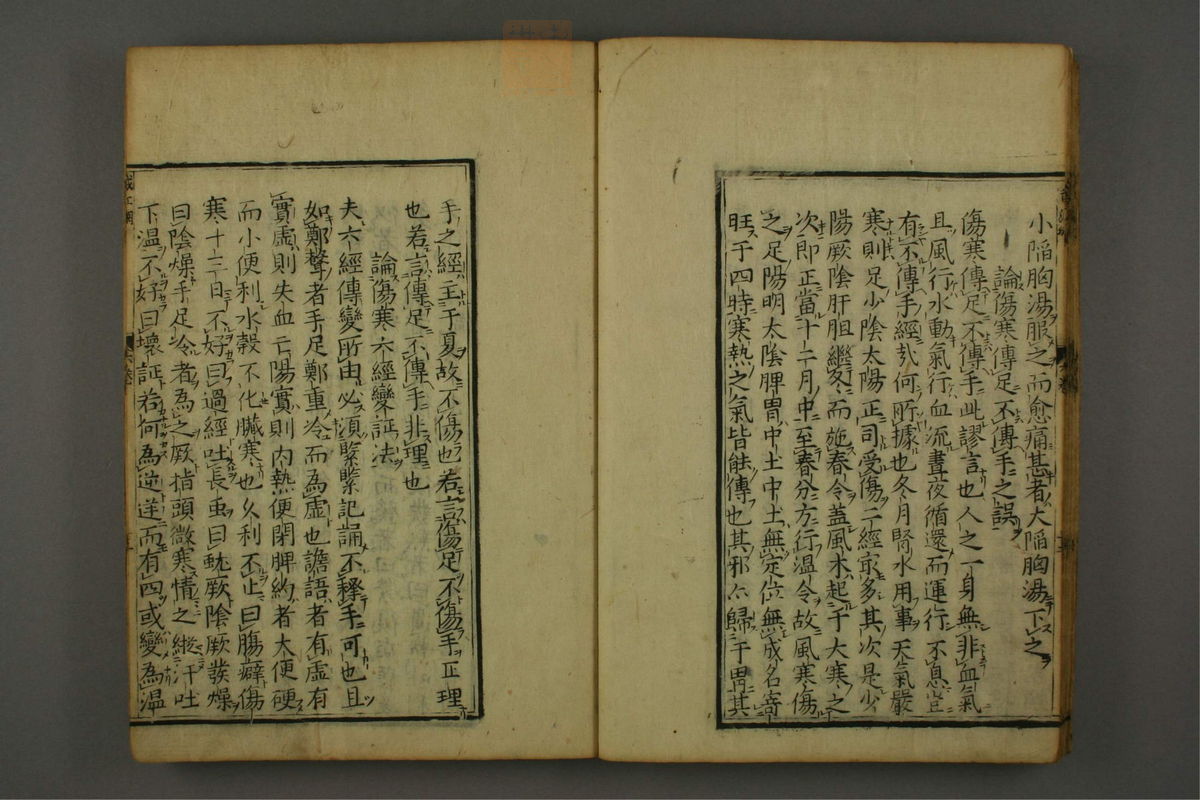 小陷胸湯服之而愈痛甚者大陷胸湯下之
論傷寒傳足不傳手之誤
傷寒傳足不傳手此謬言也人之一身無非血氣
且風行水動氣行血流晝夜循還而運行不息豈
有不傳手經㢤何所據也冬月腎水用事天氣嚴
寒則足少陰太陽正司受傷二經㝡多其次是少
陽厥陰肝胆繼冬而施春令蓋風木起于大寒之
次即正當十二月中至春分方行温令故風寒傷
之足陽明太陰脾胃中土中土無定位無成名寄
旺于四時寒熱之氣皆能傳也其邪仍歸于胃其
手之經主于夏故不傷也若言傷足不傷手正理
也若言傳足不傳手非理也
論傷寒六經變証法
夫六經傳變所由必須緊緊記誦不釋手可也且
如鄭聲者手足鄭重冷而為虛也譫語者有虛有
實虛則失血亡陽實則内熱便閉脾約者大便硬
而小便利水穀不化臟寒也久利不止曰腸癖傷
寒十三日不好曰過經吐長虫曰蚘厥陰厥發燥
曰陰燥手足冷者為之厥指頭微寒情之縱汗吐
下温不好曰壞証若何為逆逆而有四或變為温